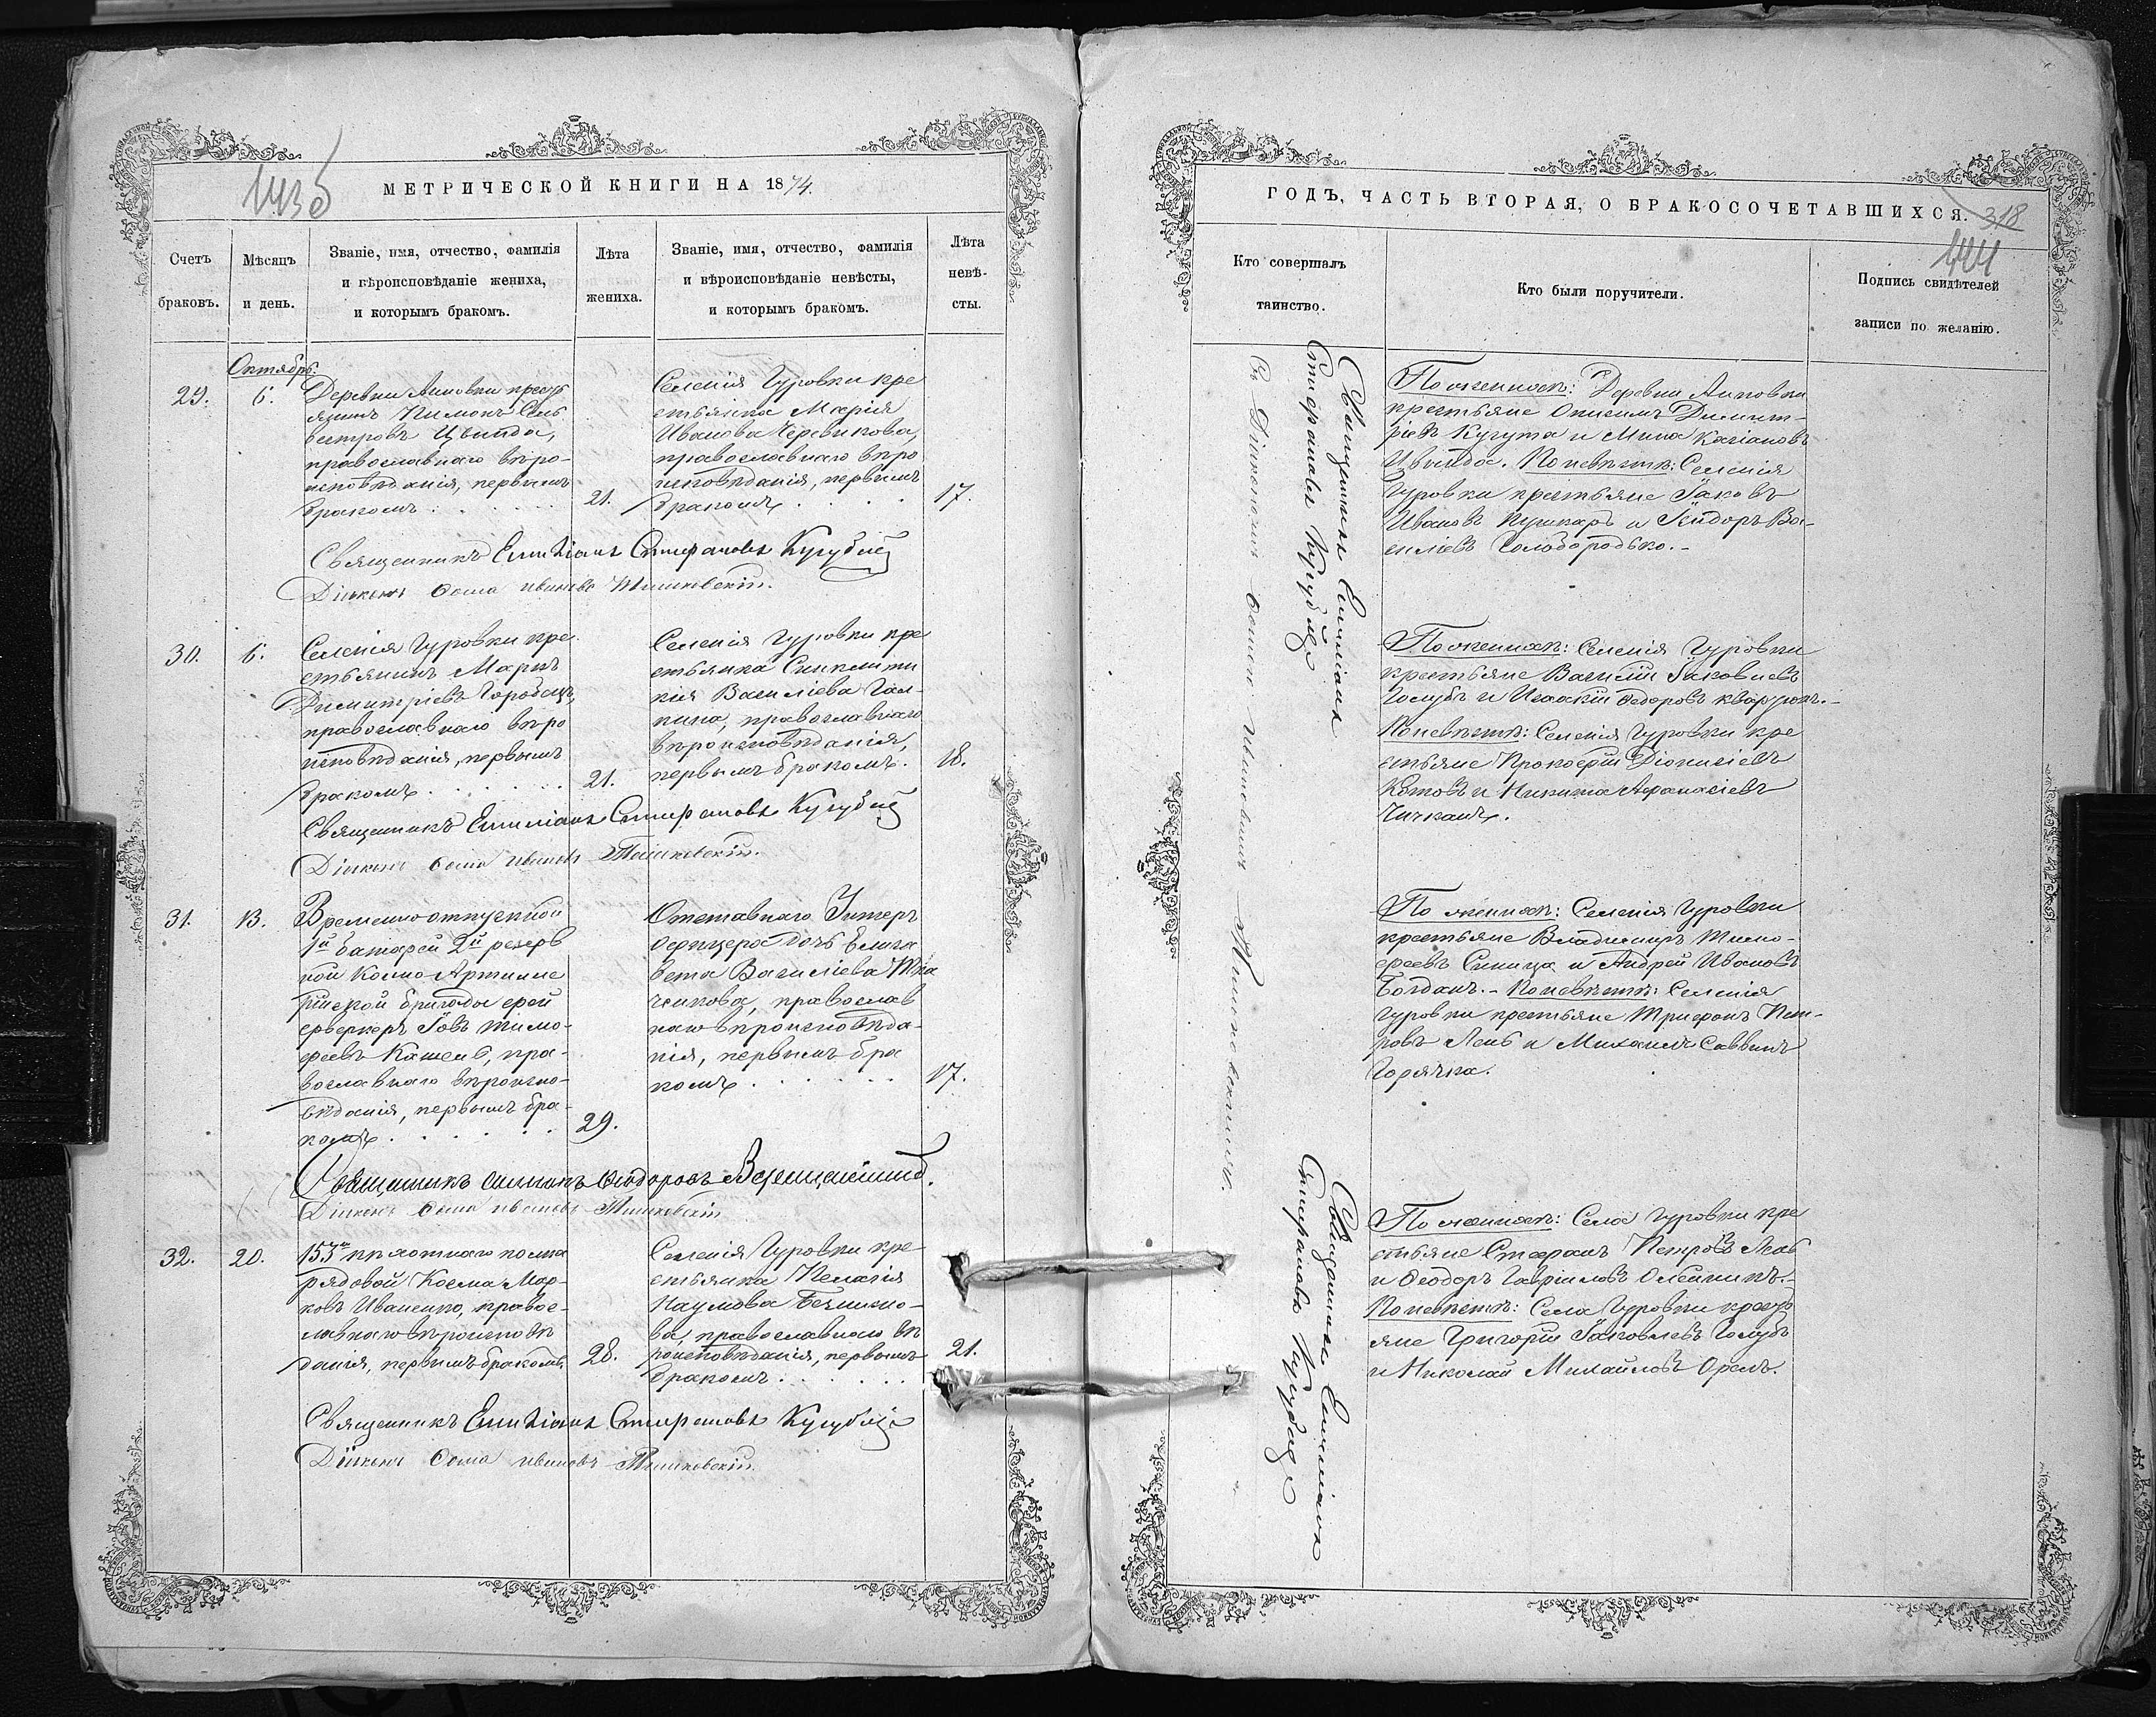 143 б
МЕТРИЧЕСКОЙ КНИГИ НА 1874.
Счетъ браковъ.
Мѣсяцъ и день.
Званіе, имя, отчество, фамилія
и вѣроисповѣданіе жениха,
и которымъ бракомъ.
Лѣта
жениха.
Званіе, имя, отчество, фамилія
и вѣроисповѣданіе невѣсты,
и которымъ бракомъ.
Лѣта
невѣ-
сты.
Октябрь.
29.
6.
Деревни Липовки кресть
янинъ Пимонъ Сель
вестровъ Цвинда,
православнаго вѣро-
исповѣданія, первымъ
бракомъ
21.
Селенія Гуровки кре
стьянка Марія
Иванова Черевикова,
православнаго вѣро
исповѣданія, первымъ
бракомъ
17.
Священникъ Емиліанъ Стефановъ
Діаконъ Ѳома Ивановъ
30.
6.
Селенія Гуровки кре
стьянинъ Маркъ
Димитріевъ Горобецъ,
православнаго вѣро
исповѣданія, первымъ
бракомъ
21.
Селенія Гуровки кре
стьянка Синклити
кія Василіева Гал-
кина, православнаго
вѣроисповѣданія,
первымъ бракомъ.
18.
Священникъ Емиліанъ Стефановъ
Діаконъ Ѳома Ивановъ
31.
13.
Временно отпускной
1й батареи 2й резерв
ной Конно-Артилле
рійской бригады фей
ерверкеръ Іовъ Тимо-
феевъ Кашель, пра-
вославнаго вѣроиспо-
вѣданія, первымъ бра-
комъ
29.
Отставнаго Унтеръ
офицера дочь Елиса
вета Василіева Тка
ченкова, православ
наго вѣроисповѣда-
нія, первымъ бра
комъ
17.
Священникъ Симонъ Ѳеодоровъ
Діаконъ Ѳома Ивановъ
32.
20.
153го пѣхотнаго полка
рядовой Косма Мар-
ковъ Иваненко, правос-
лавнаго вѣроисповѣ
данія, первымъ бракомъ
28.
Селенія Гуровки кре-
стьянка Пелагія
Наумова
ва, православнаго вѣ
роисповѣданія, первымъ
бракомъ
21.
Священникъ Емиліанъ Стефановъ
Діаконъ Ѳома Ивановъ
ГОДЪ, ЧАСТЬ ВТОРАЯ, О БРАКОСОЧЕТАВШИХСЯ.
318
144
Кто совершалъ
таинство.
Кто были поручители.
Подпись свидѣтелей
записи по желанію.
Священникъ Емиліанъ
Стефановъ
Съ Діакономъ Ѳомою Ивановымъ
По женихѣ: Деревни Липовки
крестьяне Онисимъ Димит-
ріевъ Кугута и Мина Касіановъ
Цвинда. По невѣстѣ: Селенія
Гуровки крестьяне Іаковъ
Ивановъ Пушкарь и Исидоръ Ва-
силіевъ Голобородько.
По женихѣ: Селенія Гуровки
крестьяне Василій Іаковлевъ
Голубъ и Исаакій Ѳедоровъ
По невѣстѣ: Селенія Гуровки кре
стьяне Прокофій Діонисіевъ
Котовъ и Никита Афанасіевъ
Чичканъ.
По женихѣ: Селенія Гуровки
крестьяне Владимиръ Тимо-
феевъ Синица и Андрей Ивановъ
Богданъ. По невѣстѣ: Селенія
Гуровки крестьяне Трифонъ Пет-
ровъ Лень и Михаилъ Саввинъ
Горячка.
Священникъ Емиліанъ
Стефановъ
По женихѣ: Села Гуровки кре
стьяне Стефанъ Петровъ Лень
и Ѳеодоръ Гавріиловъ Олейникъ.
По невѣстѣ: Села Гуровки кресть
яне Григорій Іаковлевъ Голубъ
и Николай Михайловъ Орелъ.